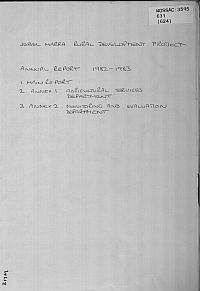 WOSSAC: 3595
631
(624)
JEBEL MARRA RURAL DEVELOPMENT PROJECT
ANNUAL REPORT 1982-1983
1. MAIN REPORT
2. ANNEX 1. AGRICULTURAL SERVICES
DEPARTMENT
3. ANNEX 2. MONITORING AND EVALUATION
DEPARTMENT